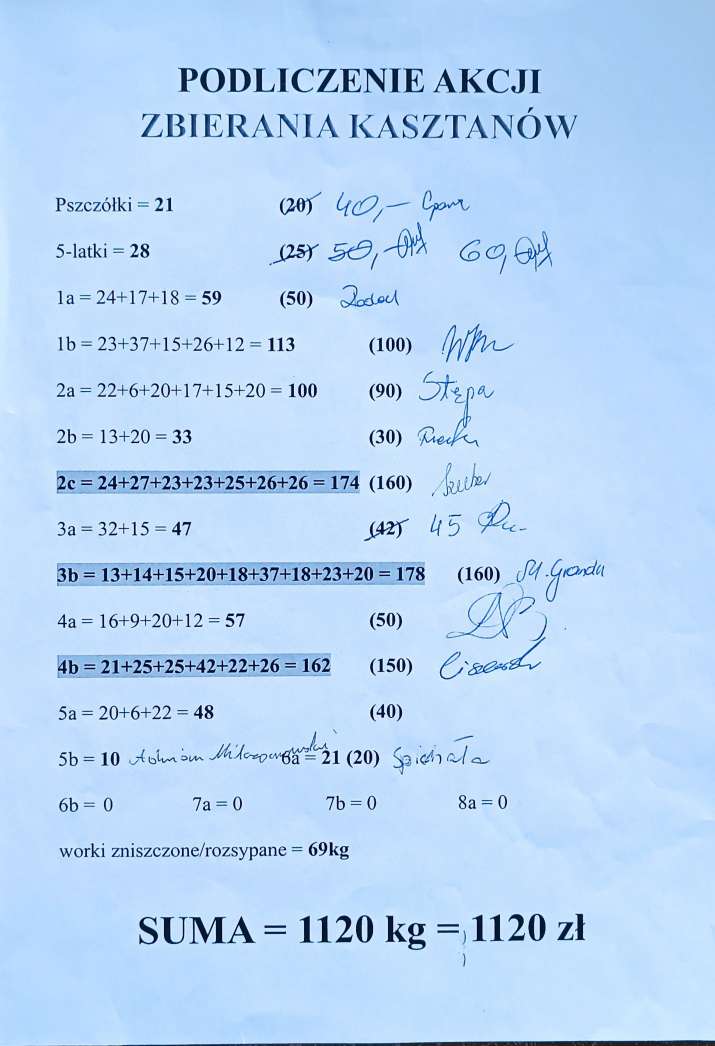 PODLICZENIE AKCJI
ZBIERANIA KASZTANÓW
Pszczółki = 21 (20) 40,-
5-latki = 28 (25) 50,- 60,
1a = 24+17+18 = 59 (50)
1b = 23+37+15+26+12 = 113 (100)
2a = 22+6+20+17+15+20 = 100 (90) Stępa
2b = 13+20 = 33 (30)
2c = 24+27+23+23+25+26+26 = 174 (160)
3a = 32+15 = 47 (42) 45
3b = 13+14+15+20+18+37+18+23+20 = 178 (160)
4a = 16+9+20+12 = 57 (50)
4b = 21+25+25+42+22+26 = 162 (150)
5a = 20+6+22 = 48 (40)
5b = 10 6a = 21 (20)
6b = 0 7a = 0 7b = 0 8a = 0
worki zniszczone/rozsypane = 69kg
SUMA = 1120 kg = 1120 zł